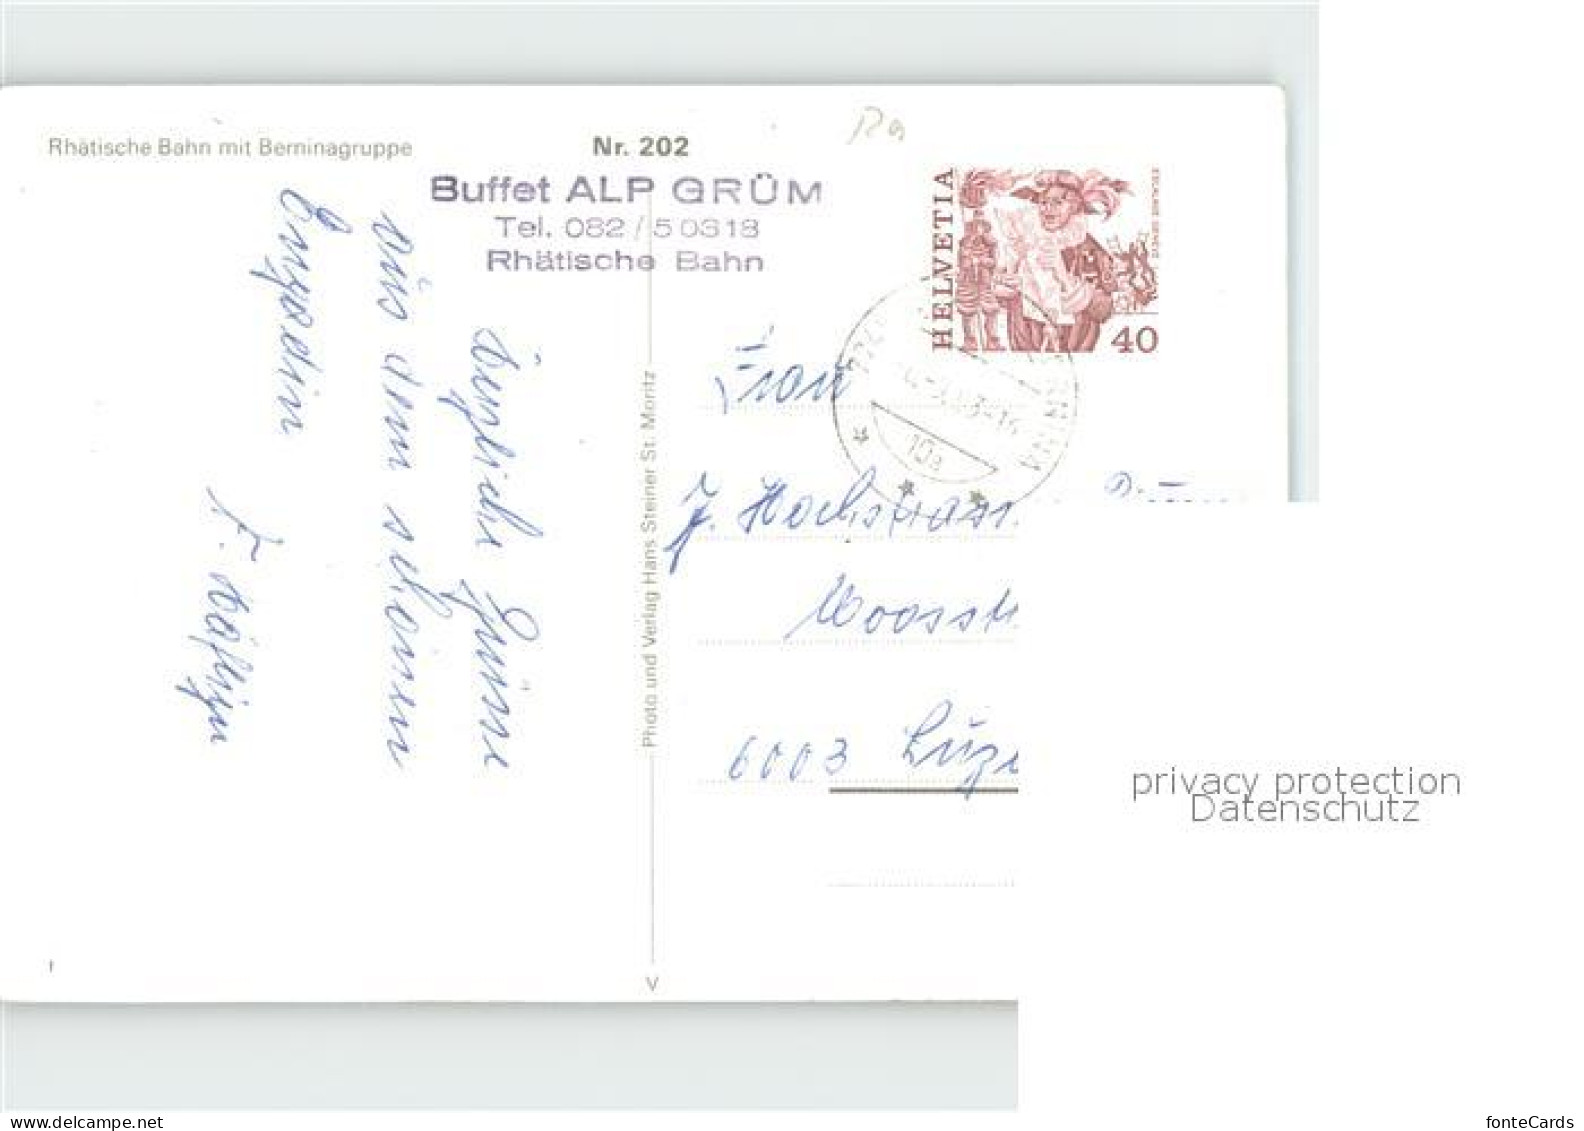 Rhätische Bahn mit Berninagruppe
Nr. 202
Buffet ALP GRÜM
Tel. 082 / 5 03 18
Rhätische Bahn
HELVETIA
ESCALADE GENÈVE
40
Herzliche Grüsse
aus dem schönen
Engadin
Frau
J. Hochstrass
Moosst
6003 Luze
10a
Photo und Verlag Hans Steiner St. Moritz
V
privacy protection
Datenschutz
delcampe.net
fonteCards